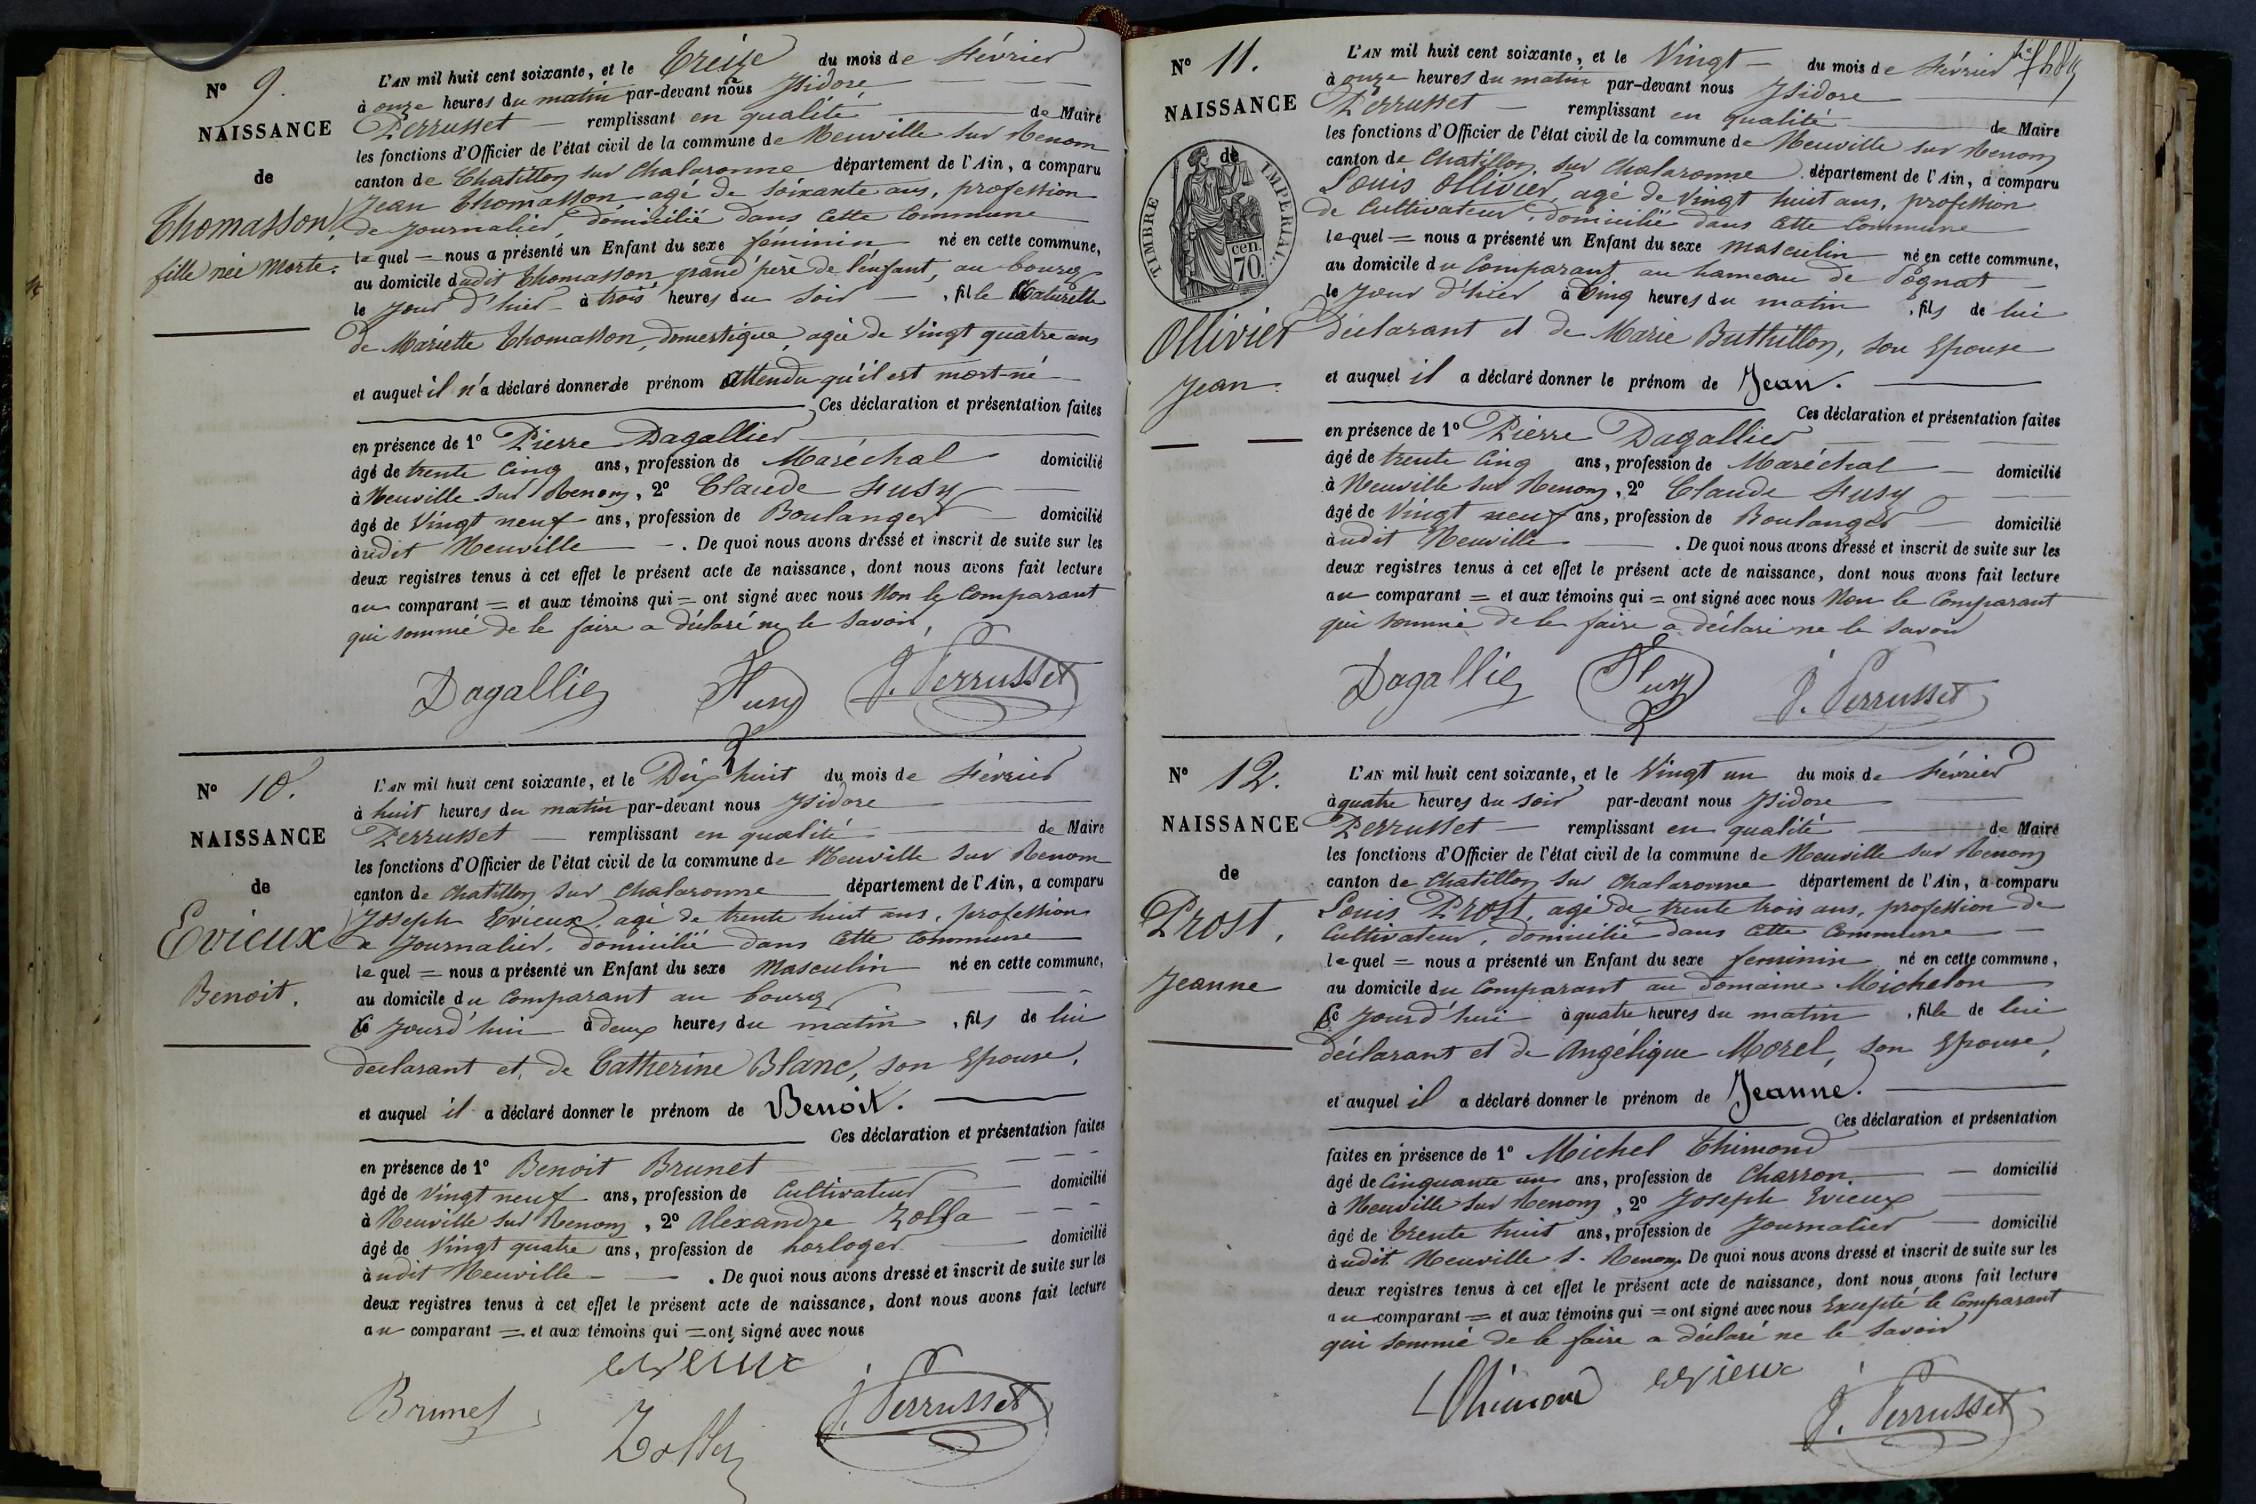 N° 9.
NAISSANCE
de
Thomasson
fille née morte.
L'AN mil huit cent soixante, et le Treize du mois de Février
à onze heures du matin par-devant nous Isidore
Perrusset remplissant en qualité de Maire
les fonctions d'Officier de l'état civil de la commune de Neuville sur Renom
canton de Chatillon sur Chalaronne département de l'Ain, a comparu
Jean Thomasson agé de soixante ans, profession
de journalier, domicilié dans cette commune
lequel = nous a présenté un Enfant du sexe féminin né en cette commune,
au domicile dudit Thomasson grand'père de l'enfant, au bourg
le jour d'hier à trois heures du soir, fille Naturelle
de Mariette Thomasson, domestique, agée de vingt quatre ans
et auquel il n'a déclaré donner de prénom attendu qu'il est mort-né
Ces déclaration et présentation faites
en présence de 1° Pierre Dagallier
âgé de trente cinq ans, profession de Maréchal domicilié
à Neuville sur Renom, 2° Claude Fusy
âgé de Vingt neuf ans, profession de Boulanger domicilié
àudit Neuville. De quoi nous avons dressé et inscrit de suite sur les
deux registres tenus à cet effet le présent acte de naissance, dont nous avons fait lecture
au comparant = et aux témoins qui = ont signé avec nous Non le Comparant
qui sommé de le faire a déclaré ne le savoir,
Dagallier Fusy J. Perrusset
N° 10.
NAISSANCE
de
Evieux
Benoit.
L'AN mil huit cent soixante, et le Dix huit du mois de Février
à huit heures du matin par-devant nous Isidore
Perrusset remplissant en qualité de Maire
les fonctions d'Officier de l'état civil de la commune de Neuville sur Renom
canton de Chatillon sur Chalaronne département de l'Ain, a comparu
Joseph Evieux, agé de trente huit ans, profession
de journalier, domicilié dans cette commune
lequel = nous a présenté un Enfant du sexe Masculin né en cette commune,
au domicile du Comparant au bourg
ce jourd'hui à deux heures du matin, fils de lui
déclarant et de Catherine Blanc, son Epouse,
et auquel il a déclaré donner le prénom de Benoit.
Ces déclaration et présentation faites
en présence de 1° Benoit Brunet
âgé de Vingt neuf ans, profession de Cultivateur domicilié
à Neuville sur Renom, 2° Alexandre Zolla
âgé de Vingt quatre ans, profession de horloger domicilié
àudit Neuville. De quoi nous avons dressé et inscrit de suite sur les
deux registres tenus à cet effet le présent acte de naissance, dont nous avons fait lecture
au comparant = et aux témoins qui = ont signé avec nous
evieux
Brunet Zolla J. Perrusset
N° 11.
NAISSANCE
de
TIMBRE IMPÉRIAL
70 cen.
Ollivier
Jean.
L'AN mil huit cent soixante, et le Vingt du mois de Février
à onze heures du matin par-devant nous Isidore
Perrusset remplissant en qualité de Maire
les fonctions d'Officier de l'état civil de la commune de Neuville sur Renom
canton de Chatillon sur Chalaronne département de l'Ain, a comparu
Louis Ollivier, agé de Vingt huit ans, profession
de Cultivateur, domicilié dans cette Commune
lequel = nous a présenté un Enfant du sexe masculin né en cette commune,
au domicile du Comparant au hameau de Pognat
le jour d'hier à Cinq heures du matin, fils de lui
déclarant et de Marie Buthillon, son Epouse
et auquel il a déclaré donner le prénom de Jean.
Ces déclaration et présentation faites
en présence de 1° Pierre Dagallier
âgé de trente cinq ans, profession de Maréchal domicilié
à Neuville sur Renom, 2° Claude Fusy
âgé de Vingt neuf ans, profession de Boulanger domicilié
àudit Neuville. De quoi nous avons dressé et inscrit de suite sur les
deux registres tenus à cet effet le présent acte de naissance, dont nous avons fait lecture
au comparant = et aux témoins qui = ont signé avec nous Non le Comparant
qui sommé de le faire a déclaré ne le savoir
Dagallier Fusy J. Perrusset
N° 12.
NAISSANCE
de
Prost,
Jeanne
L'AN mil huit cent soixante, et le Vingt un du mois de Février
à quatre heures du soir par-devant nous Isidore
Perrusset remplissant en qualité de Maire
les fonctions d'Officier de l'état civil de la commune de Neuville sur Renom
canton de Chatillon sur Chalaronne département de l'Ain, a comparu
Louis Prost, agé de trente trois ans, profession de
Cultivateur, domicilié dans cette Commune
lequel = nous a présenté un Enfant du sexe feminin né en cette commune,
au domicile du Comparant au domaine Michelon
ce jourd'hui à quatre heures du matin, fille de lui
déclarant et de Angélique Morel, son Epouse,
et auquel il a déclaré donner le prénom de Jeanne.
Ces déclaration et présentation
faites en présence de 1° Michel Thimond
âgé de Cinquante un ans, profession de Charron domicilié
à Neuville sur Renom, 2° Joseph Evieux
âgé de trente huit ans, profession de Journalier domicilié
àudit Neuville s. Renom. De quoi nous avons dressé et inscrit de suite sur les
deux registres tenus à cet effet le présent acte de naissance, dont nous avons fait lecture
au comparant = et aux témoins qui = ont signé avec nous Excepté le Comparant
qui sommé de le faire a déclaré ne le savoir
Thimond evieux J. Perrusset